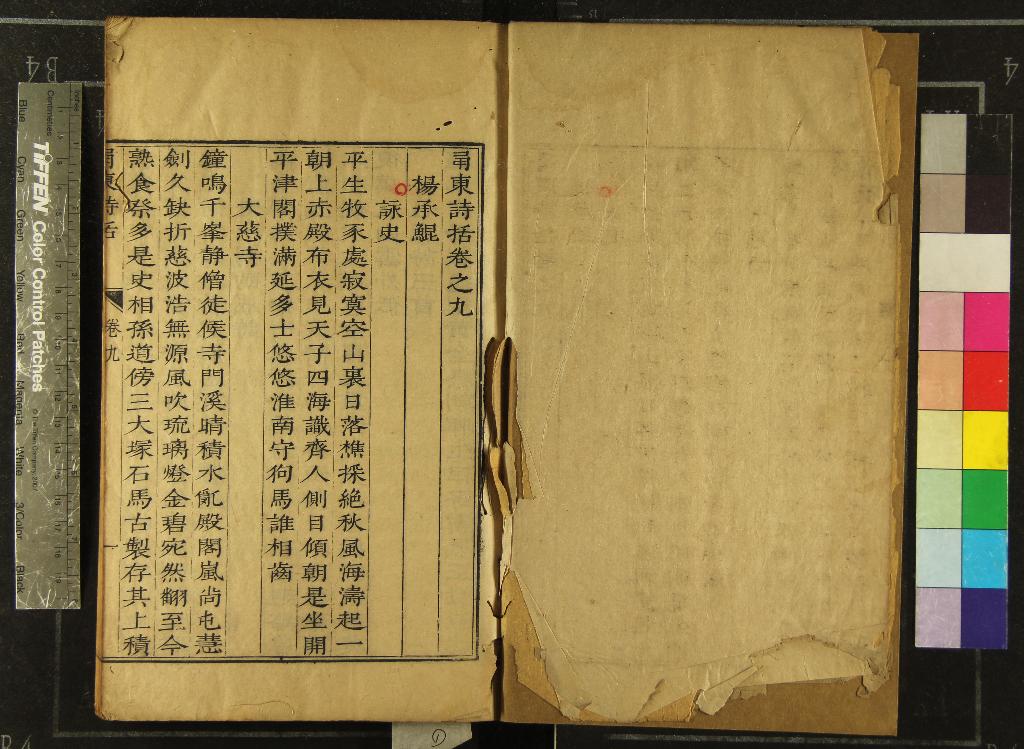 甬東詩括卷之九
楊承鯤
詠史
平生牧豕處寂寞空山裏日落樵採絕秋風海濤起一
朝上赤殿布衣見天子四海識齊人側目傾朝是坐開
平津閣撲滿延多士悠悠淮南守狗馬誰相齒
大慈寺
鐘鳴千峯静僧徒候寺門溪晴積水亂殿閣嵐尚屯慧
劍久缺折慈波浩無源風吹琉璃燈金碧宛然翻至今
熟食祭多是史相孫道傍三大塚石馬古製存其上積
甬東詩括
卷九
一
TIFFEN Color Control Patches
© The Tiffen Company, 2007
Centimetres
Inches
Blue
Cyan
Green
Yellow
Red
Magenta
White
3/Color
Black
B4